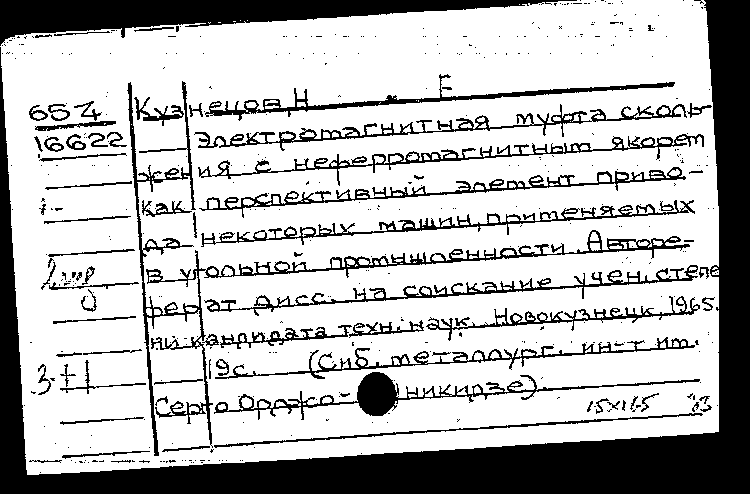 65 Z
16622
Кузнецов, Н. Е
Электромагнитная муфта сколь-
жения с неферромагнитным якорем
как перспективный элемент приво-
да некоторых машин, применяемых
в угольной промышленности. Авторе-
ферат дисс. на соискание учен. степе
ни кандидата техн. наук. Новокузнецк, 1965.
19с. (Сиб. металлург. ин-т им.
Серго Орджоникидзе).
15x16.5